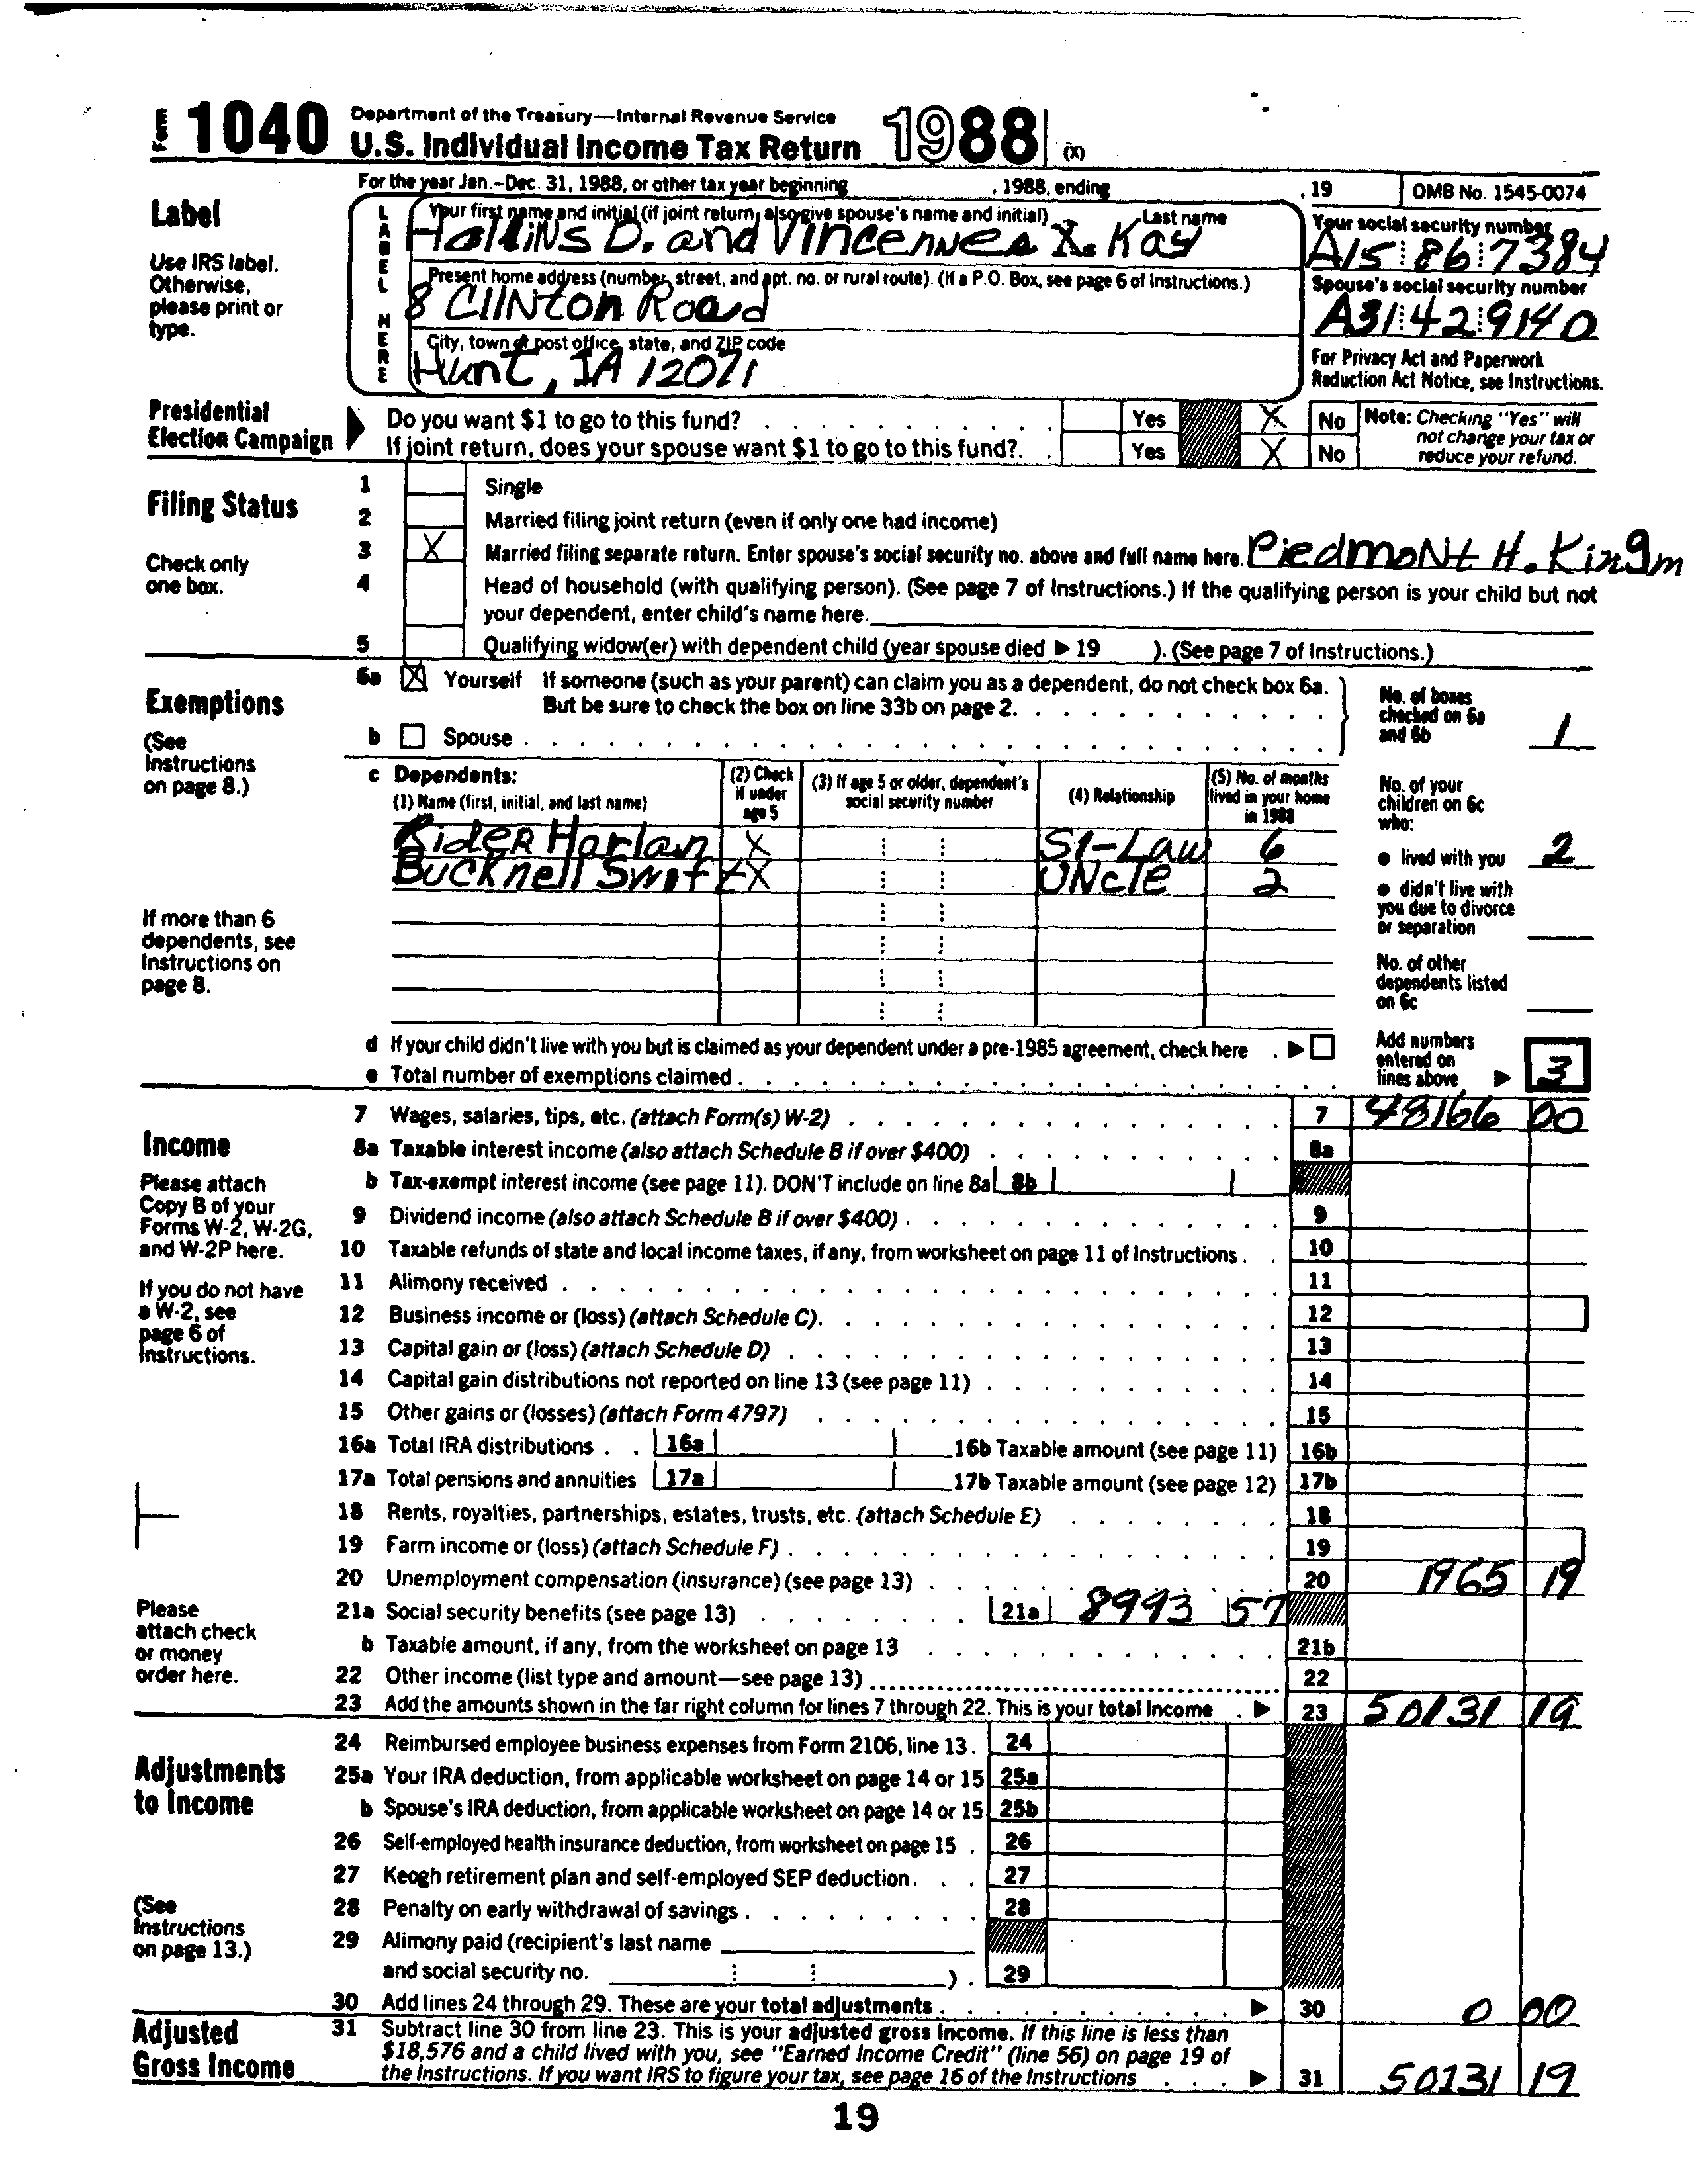 Form 1040 Department of the Treasury—Internal Revenue Service
U.S. Individual Income Tax Return 1988 (X)
For the year Jan.-Dec. 31, 1988, or other tax year beginning , 1988, ending , 19 OMB No. 1545-0074
Label
Use IRS label. Otherwise, please print or type.
LABEL HERE
Your first name and initial (if joint return, also give spouse's name and initial) Last name
Hollins D. and Vincennes X. Kay
Your social security number
A15 86 7384
Present home address (number, street, and apt. no. or rural route). (If a P.O. Box, see page 6 of Instructions.)
8 Clinton Road
Spouse's social security number
A31 42 9140
City, town or post office, state, and ZIP code
Hunt, IA 12071
For Privacy Act and Paperwork Reduction Act Notice, see Instructions.
Presidential Election Campaign
Do you want $1 to go to this fund? Yes X No
If joint return, does your spouse want $1 to go to this fund?. Yes X No
Note: Checking "Yes" will not change your tax or reduce your refund.
Filing Status
Check only one box.
1 Single
2 Married filing joint return (even if only one had income)
3 X Married filing separate return. Enter spouse's social security no. above and full name here. Piedmont H. Kingm
4 Head of household (with qualifying person). (See page 7 of Instructions.) If the qualifying person is your child but not
your dependent, enter child's name here.
5 Qualifying widow(er) with dependent child (year spouse died ▶ 19 ). (See page 7 of Instructions.)
Exemptions
(See Instructions on page 8.)
6a X Yourself If someone (such as your parent) can claim you as a dependent, do not check box 6a.
But be sure to check the box on line 33b on page 2.
b Spouse
No. of boxes checked on 6a and 6b 1
c Dependents:
(1) Name (first, initial, and last name) (2) Check if under age 5 (3) If age 5 or older, dependent's social security number (4) Relationship (5) No. of months lived in your home in 1988
Rider Harlan X SI-Law 6
Bucknell Swift X Uncle 2
No. of your children on 6c who:
● lived with you 2
● didn't live with you due to divorce or separation
No. of other dependents listed on 6c
If more than 6 dependents, see Instructions on page 8.
d If your child didn't live with you but is claimed as your dependent under a pre-1985 agreement, check here ▶
e Total number of exemptions claimed
Add numbers entered on lines above ▶ 3
Income
Please attach Copy B of your Forms W-2, W-2G, and W-2P here.
If you do not have a W-2, see page 6 of Instructions.
Please attach check or money order here.
7 Wages, salaries, tips, etc. (attach Form(s) W-2) 7 48166 00
8a Taxable interest income (also attach Schedule B if over $400) 8a
b Tax-exempt interest income (see page 11). DON'T include on line 8a 8b
9 Dividend income (also attach Schedule B if over $400) 9
10 Taxable refunds of state and local income taxes, if any, from worksheet on page 11 of Instructions 10
11 Alimony received 11
12 Business income or (loss) (attach Schedule C). 12
13 Capital gain or (loss) (attach Schedule D) 13
14 Capital gain distributions not reported on line 13 (see page 11) 14
15 Other gains or (losses) (attach Form 4797) 15
16a Total IRA distributions 16a 16b Taxable amount (see page 11) 16b
17a Total pensions and annuities 17a 17b Taxable amount (see page 12) 17b
18 Rents, royalties, partnerships, estates, trusts, etc. (attach Schedule E) 18
19 Farm income or (loss) (attach Schedule F) 19
20 Unemployment compensation (insurance) (see page 13) 20 1965 19
21a Social security benefits (see page 13) 21a 8993 57
b Taxable amount, if any, from the worksheet on page 13 21b
22 Other income (list type and amount—see page 13) 22
23 Add the amounts shown in the far right column for lines 7 through 22. This is your total income ▶ 23 50131 19
Adjustments to Income
(See Instructions on page 13.)
24 Reimbursed employee business expenses from Form 2106, line 13. 24
25a Your IRA deduction, from applicable worksheet on page 14 or 15 25a
b Spouse's IRA deduction, from applicable worksheet on page 14 or 15 25b
26 Self-employed health insurance deduction, from worksheet on page 15 26
27 Keogh retirement plan and self-employed SEP deduction 27
28 Penalty on early withdrawal of savings 28
29 Alimony paid (recipient's last name
and social security no. ) 29
30 Add lines 24 through 29. These are your total adjustments ▶ 30 0 00
Adjusted Gross Income
31 Subtract line 30 from line 23. This is your adjusted gross income. If this line is less than
$18,576 and a child lived with you, see "Earned Income Credit" (line 56) on page 19 of
the Instructions. If you want IRS to figure your tax, see page 16 of the Instructions ▶ 31 50131 19
19